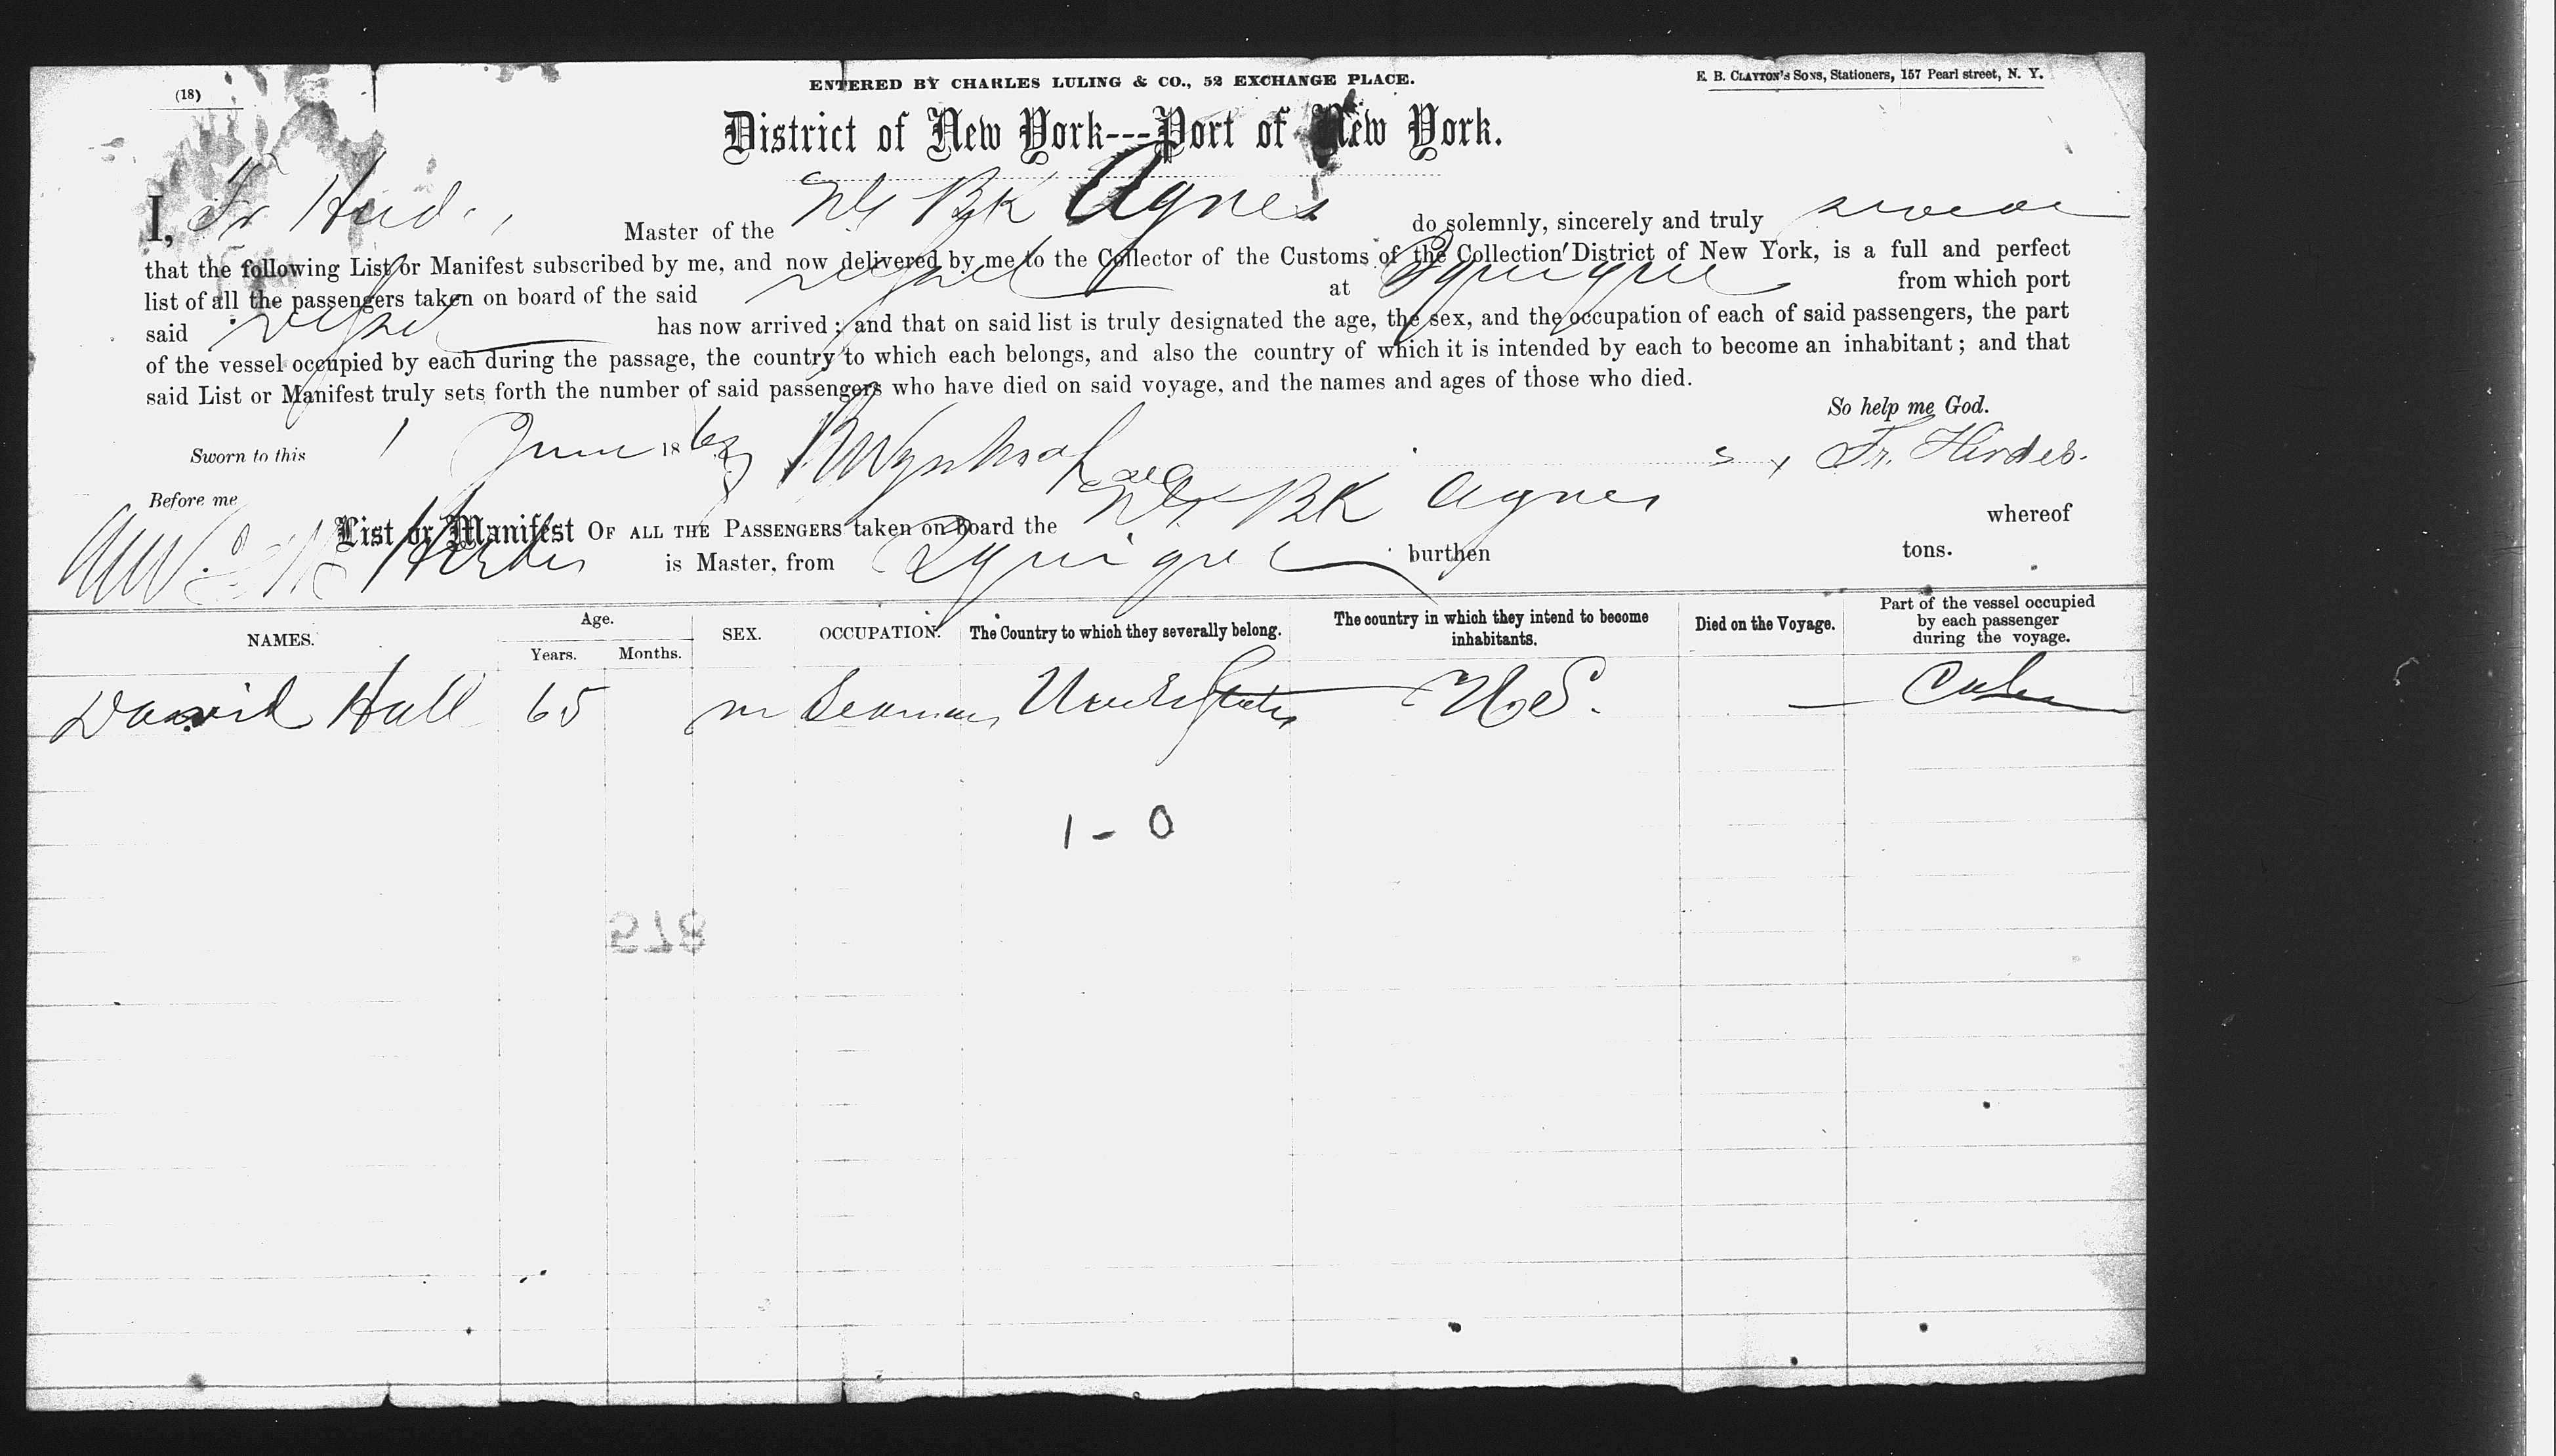 (18)
ENTERED BY CHARLES LULING & CO., 52 EXCHANGE PLACE.
E. B. CLAYTON'S SONS, Stationers, 157 Pearl street, N. Y.
District of New York---Port of New York.
I, Fr Master of the Bk Agnes do solemnly, sincerely and truly swear
that the following List or Manifest subscribed by me, and now delivered by me to the Collector of the Customs of the Collection District of New York, is a full and perfect
list of all the passengers taken on board of the said vessel at Iquique from which port
said vessel has now arrived; and that on said list is truly designated the age, the sex, and the occupation of each of said passengers, the part
of the vessel occupied by each during the passage, the country to which each belongs, and also the country of which it is intended by each to become an inhabitant; and that
said List or Manifest truly sets forth the number of said passengers who have died on said voyage, and the names and ages of those who died.
So help me God.
Sworn to this 1 June 18 Fr. Hirdes.
Before me
List or Manifest OF ALL THE PASSENGERS taken on board the BK Agnes whereof
Hirdes is Master, from Iquique burthen tons.
NAMES. Age. Years. Months. SEX. OCCUPATION. The Country to which they severally belong. The country in which they intend to become inhabitants. Died on the Voyage. Part of the vessel occupied by each passenger during the voyage.
David Hall 65 m Seaman United States U.S. — Cabin
1 - 0
578